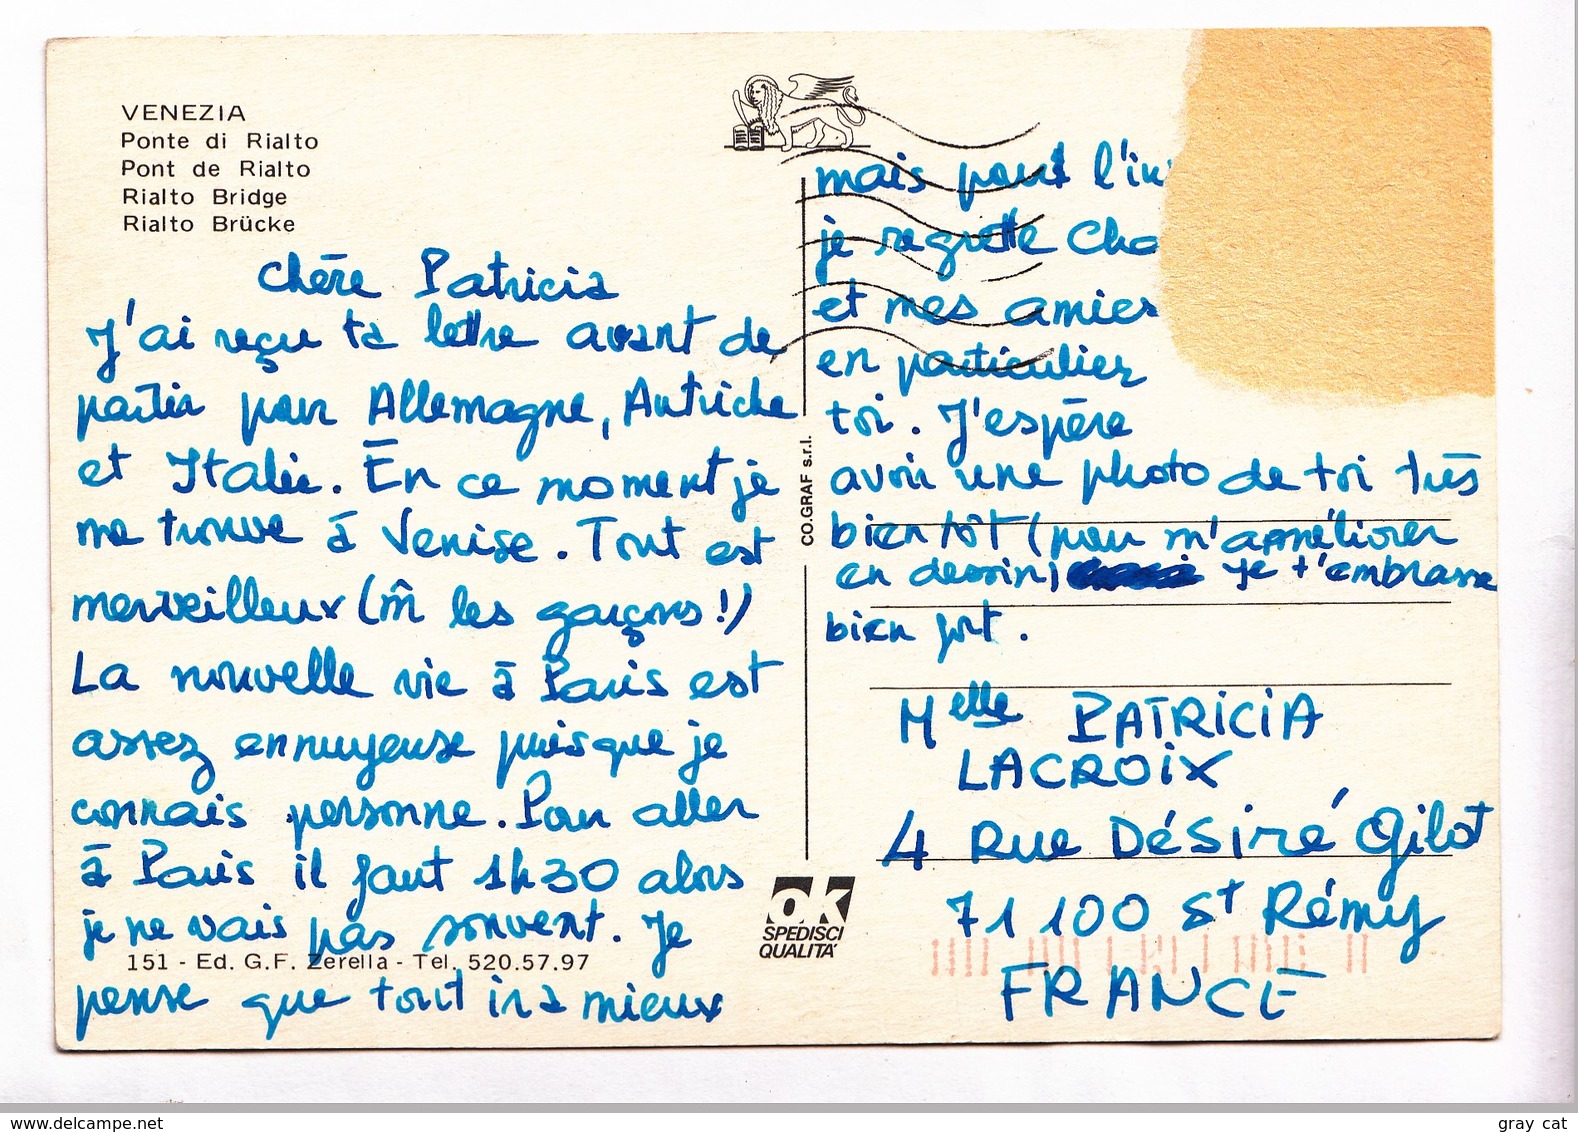 VENEZIA
Ponte di Rialto
Pont de Rialto
Rialto Bridge
Rialto Brücke
Chère Patricia
J'ai reçu ta lettre avant de
partir pour Allemagne, Autriche
et Italie. En ce moment je
me trouve à Venise. Tout est
merveilleux (m̂ les garçons!)
La nouvelle vie à Paris est
assez ennuyeuse puisque je
connais personne. Pour aller
à Paris il faut 1h30 alors
je ne vais pas souvent. Je
pense que tout ira mieux
151 - Ed. G.F. Zerella - Tel. 520.57.97
CO.GRAF s.r.l.
OK
SPEDISCI
QUALITA'
mais pour l'in
je regrette Cha
et mes amies
en particulier
toi. J'espère
avoir une photo de toi très
bientôt (pour m'améliorer
en dessin) Je t'embrasse
bien fort.
Melle PATRICIA
LACROIX
4 Rue Désiré Gilot
71100 St Rémy
FRANCE
www.delcampe.net
gray cat